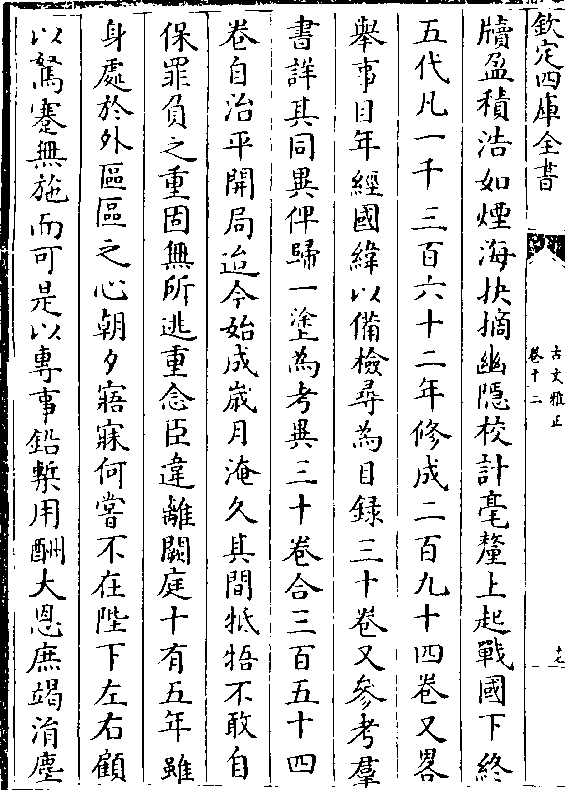 欽定四庫全書
古文雅正
卷十二
十七
牘盈積浩如煙海抉摘幽隱校計毫釐上起戰國下終
五代凡一千三百六十二年修成二百九十四卷又畧
舉事目年經國緯以備檢尋為目録三十卷又參考羣
書詳其同異俾歸一塗為考異三十卷合三百五十四
卷自治平開局迨今始成嵗月淹久其間牴牾不敢自
保罪負之重固無所逃重念臣違離闕庭十有五年雖
身處於外區區之心朝夕寤寐何嘗不在陛下左右顧
以駑蹇無施而可是以專事鉛槧用酬大恩庶竭涓塵